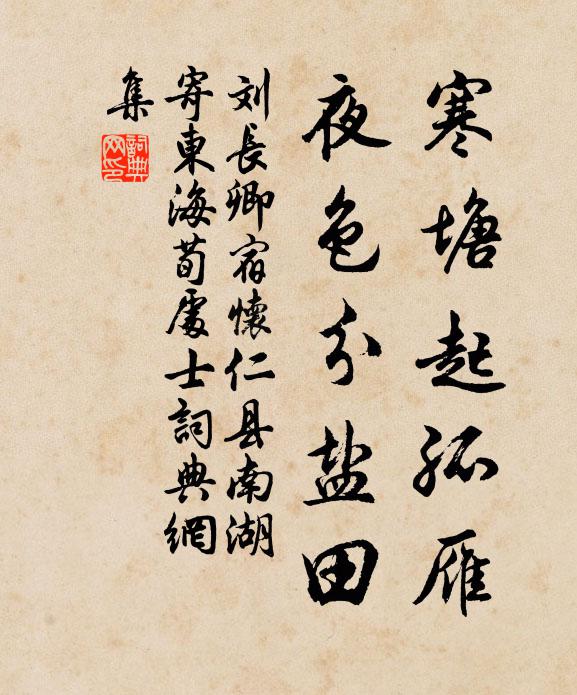 寒塘起孤雁
夜色分盐田
刘長卿宿懷仁县南湖
寄東海荀處士詞典網
集
詞典網印